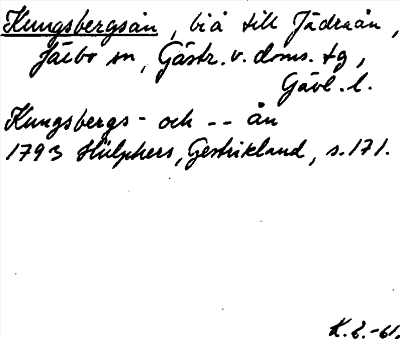 Kungsbergsån, biå till Jädraån,
Järbo sn, Gästr. v. doms. tg,
Gävl. l.
Kungsbergs- och -- ån
1793 Hülphers, Gestrikland, s. 171.
K. E. -61.